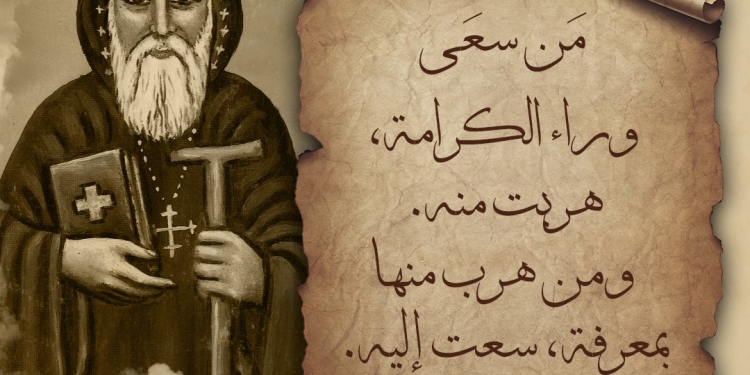 مَن سعَى
وراء الكرامة،
هربت منه.
ومن هرب منها
بمعرفة، سعت إليه.